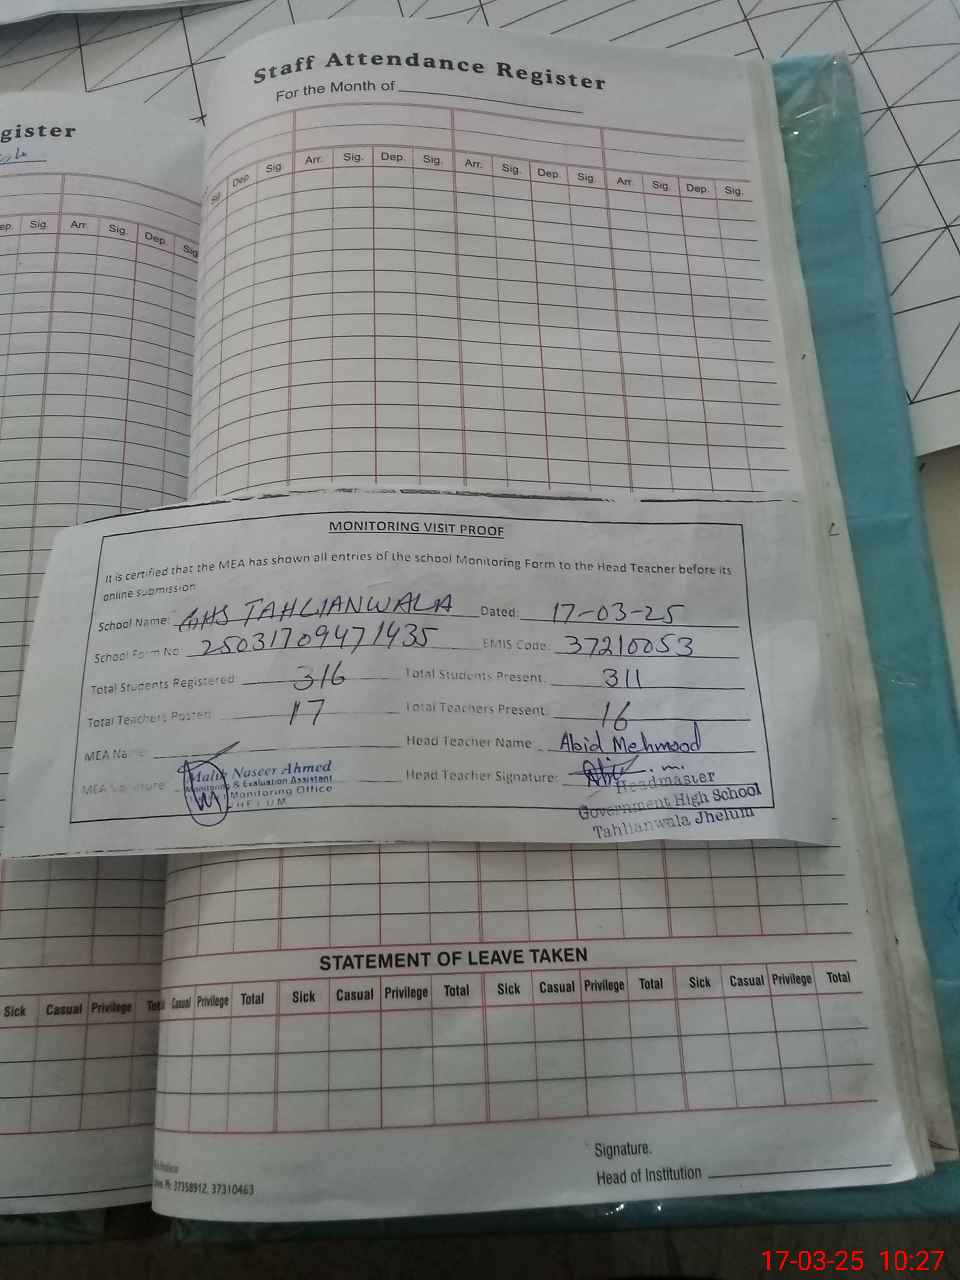 gister
Staff Attendance Register
For the Month of
Dep. Sig. Arr. Sig. Dep. Sig. Arr. Sig. Dep. Sig. Arr. Sig. Dep. Sig.
ep. Sig. Arr. Sig. Dep. Sig
MONITORING VISIT PROOF
It is certified that the MEA has shown all entries of the school Monitoring Form to the Head Teacher before its
online submission
School Name: GHS TAHLIANWALA Dated: 17-03-25
School Form No: 25031709471435 EMIS Code: 37210053
Total Students Registered 316 Total Students Present: 311
Total Teachers Posted 17 Total Teachers Present: 16
MEA Name Head Teacher Name: Abid Mehmood
MEA Signature: Head Teacher Signature:
Malik Naseer Ahmed
Monitoring & Evaluation Assistant
Monitoring Office
JHELUM
Headmaster
Government High School
Tahlianwala Jhelum
STATEMENT OF LEAVE TAKEN
Sick Casual Privilege Total
Casual Privilege Total Sick Casual Privilege Total Sick Casual Privilege Total Sick Casual Privilege Total
Signature.
Head of Institution
Ph: 37358912, 37310463
17-03-25 10:27